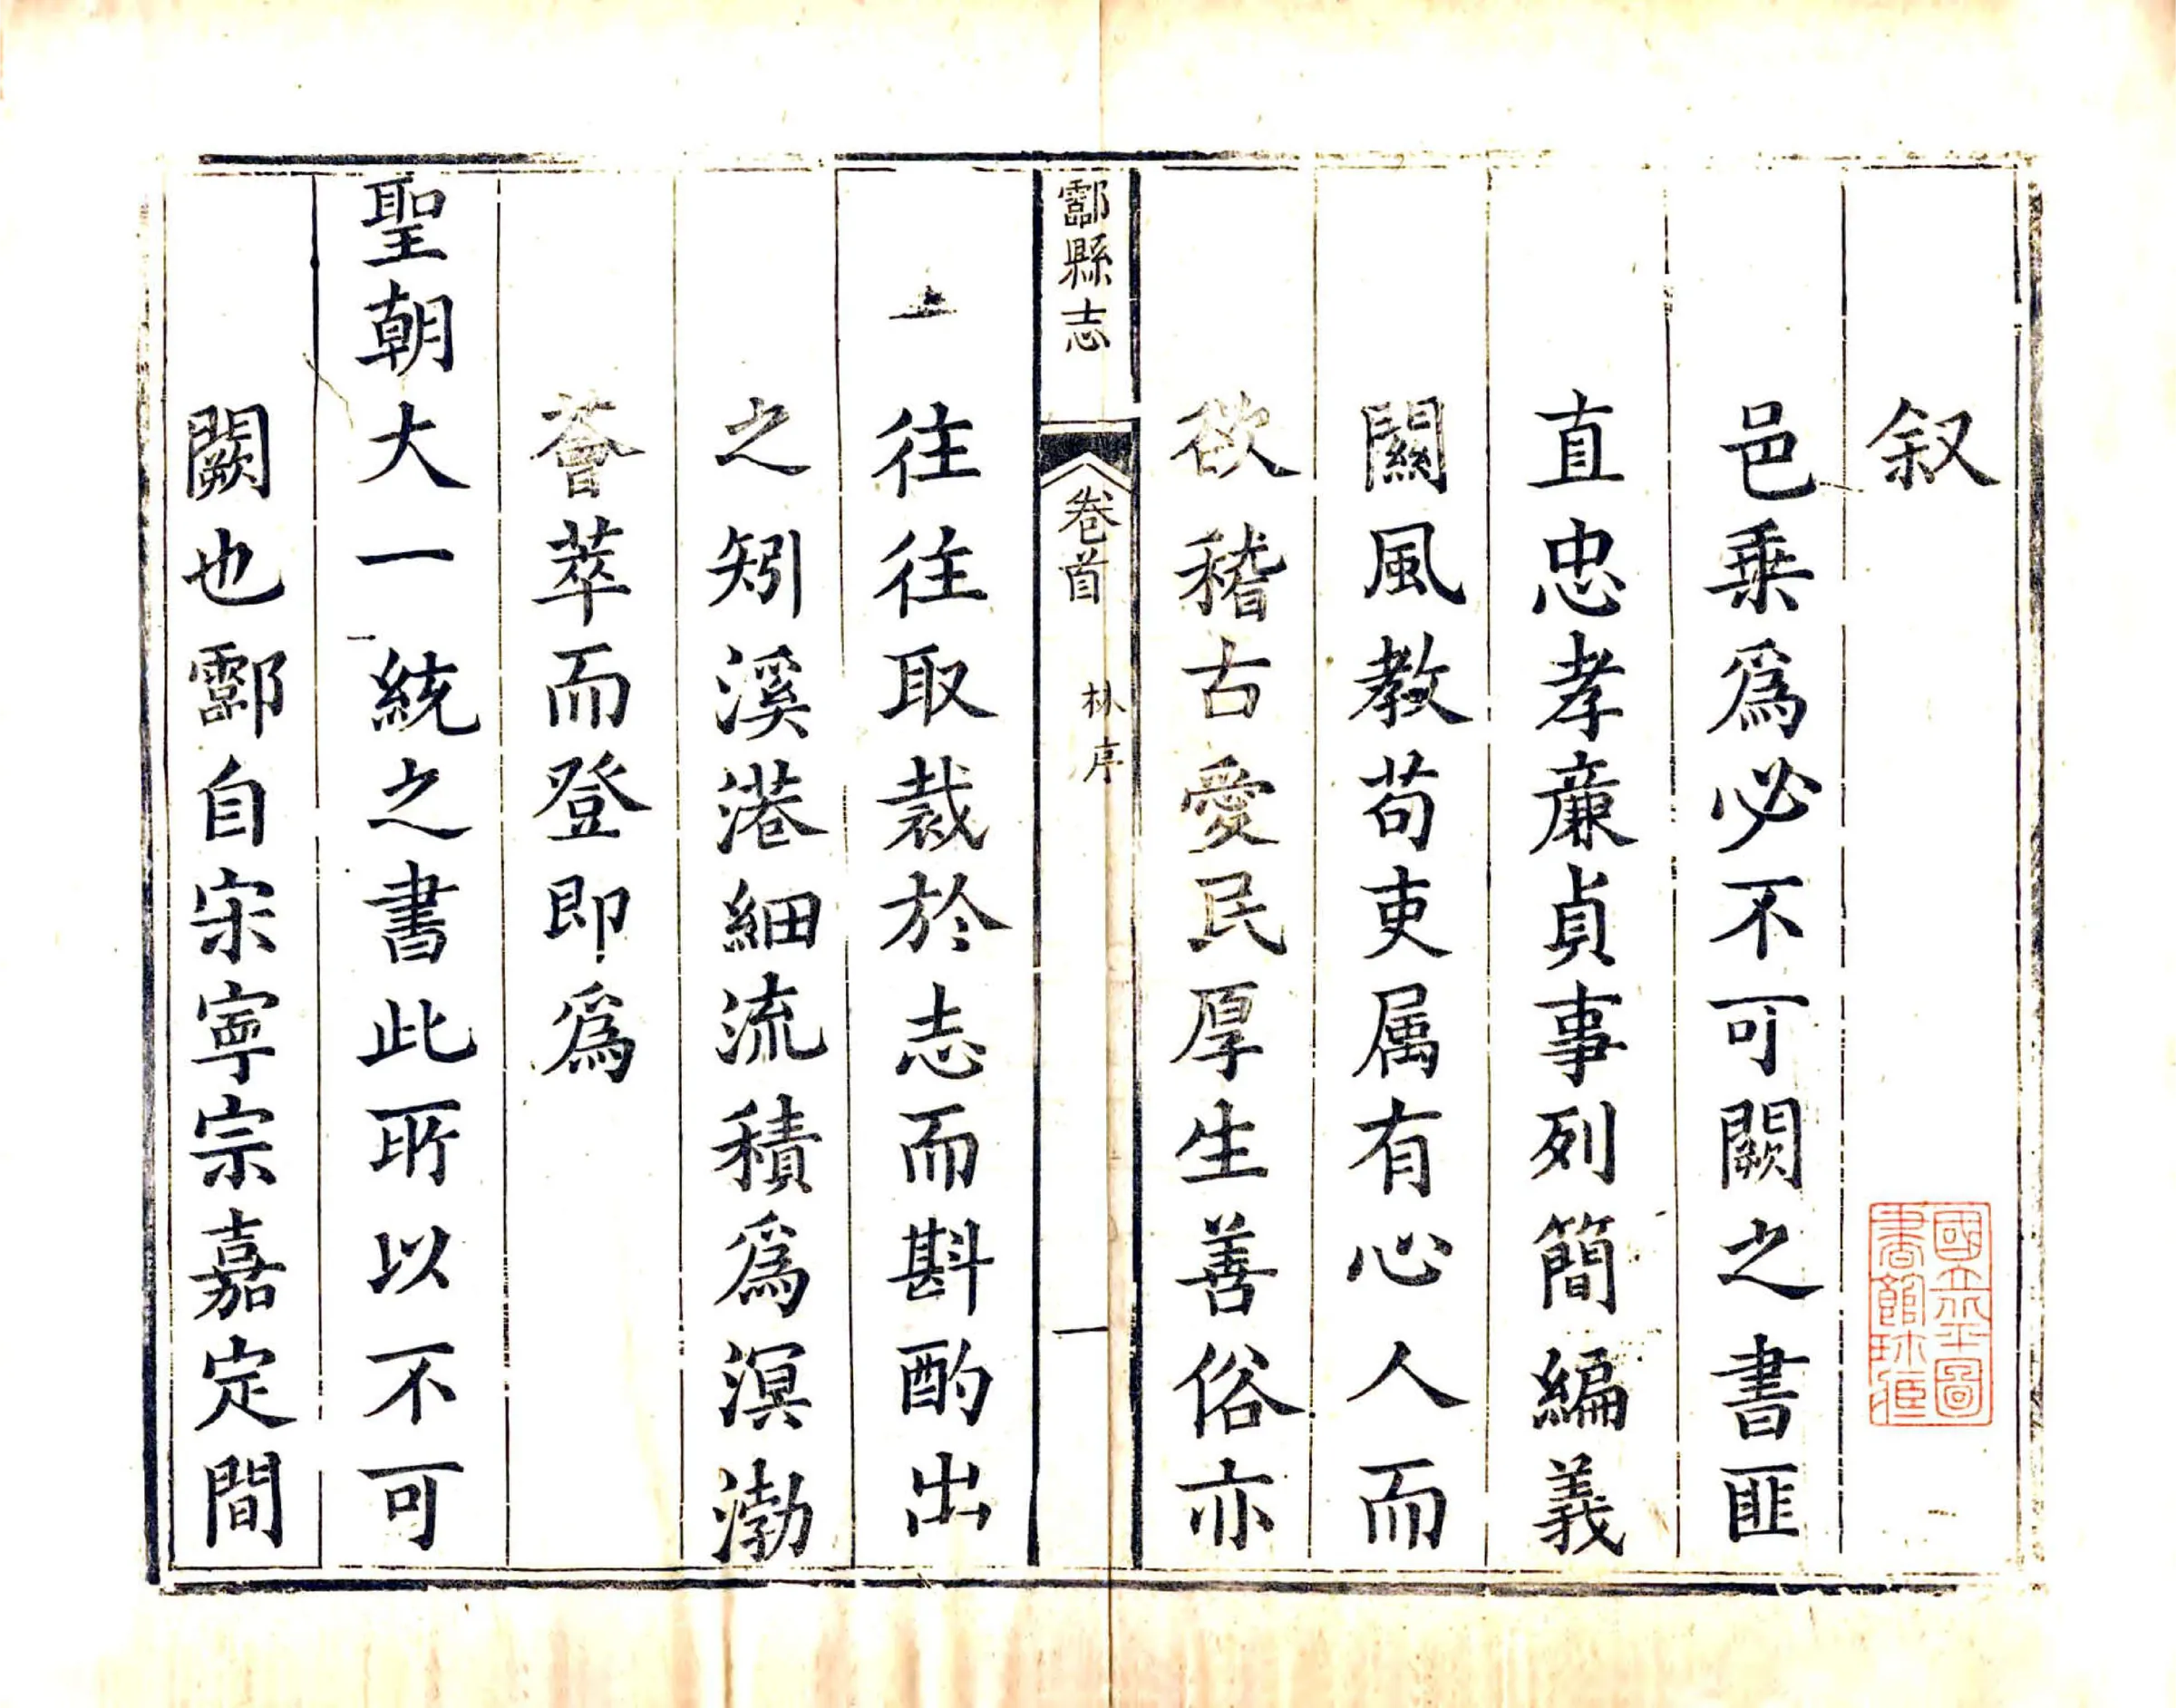 叙
邑乗爲必不可闕之書匪
直忠孝亷貞事列簡編義
關風教苟吏属有心人而
欲稽古愛民厚生善俗亦
酃縣志 卷首 林序 一
往往取裁於志而斟酌出
之矧溪港細流積爲溟渤
薈萃而登即爲
聖朝大一統之書此所以不可
闕也酃自宋寕宗嘉定間
國立北平圖
書館珍藏